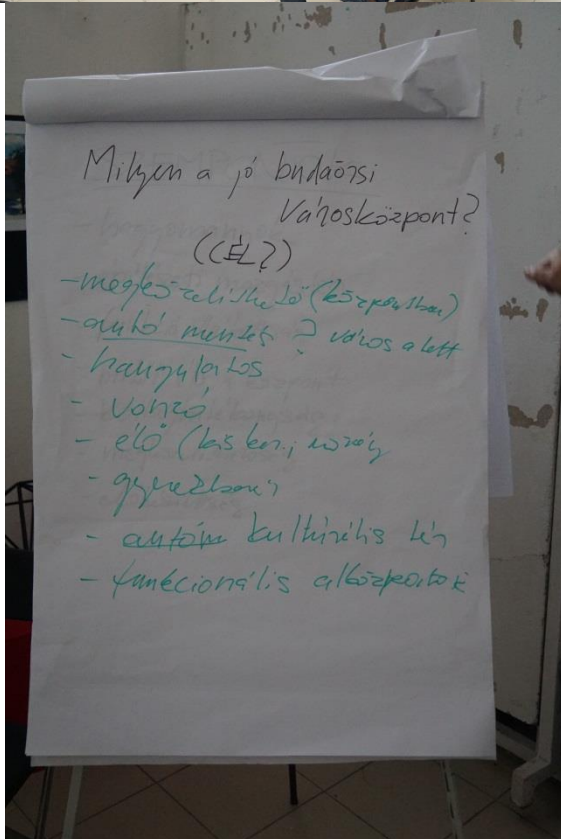 Milyen a jó budaörsi
Városközpont?
(CÉL?)
- megközelíthető (központban)
- autó mentes ? város alatt
- hangulatos
- vonzó
- élő (kis ker.,
- gyerekbarát
- autóm kulturális tér
- funkcionális alközpontok